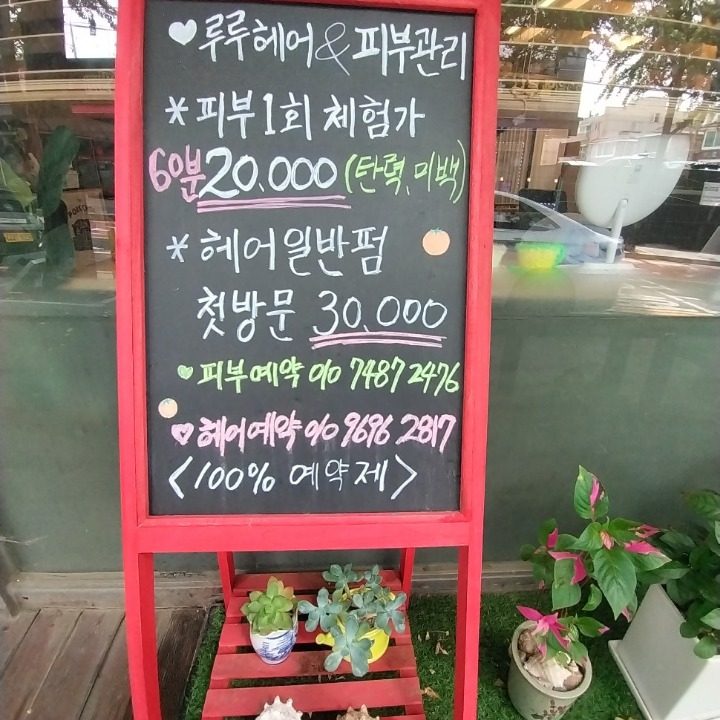 ♥루루헤어&피부관리
*피부1회 체험가
60분 20.000 (탄력.미백)
*헤어일반펌
첫방문 30.000
♥피부예약 010 7487 2476
♥헤어예약 010 9696 2817
<100% 예약제>